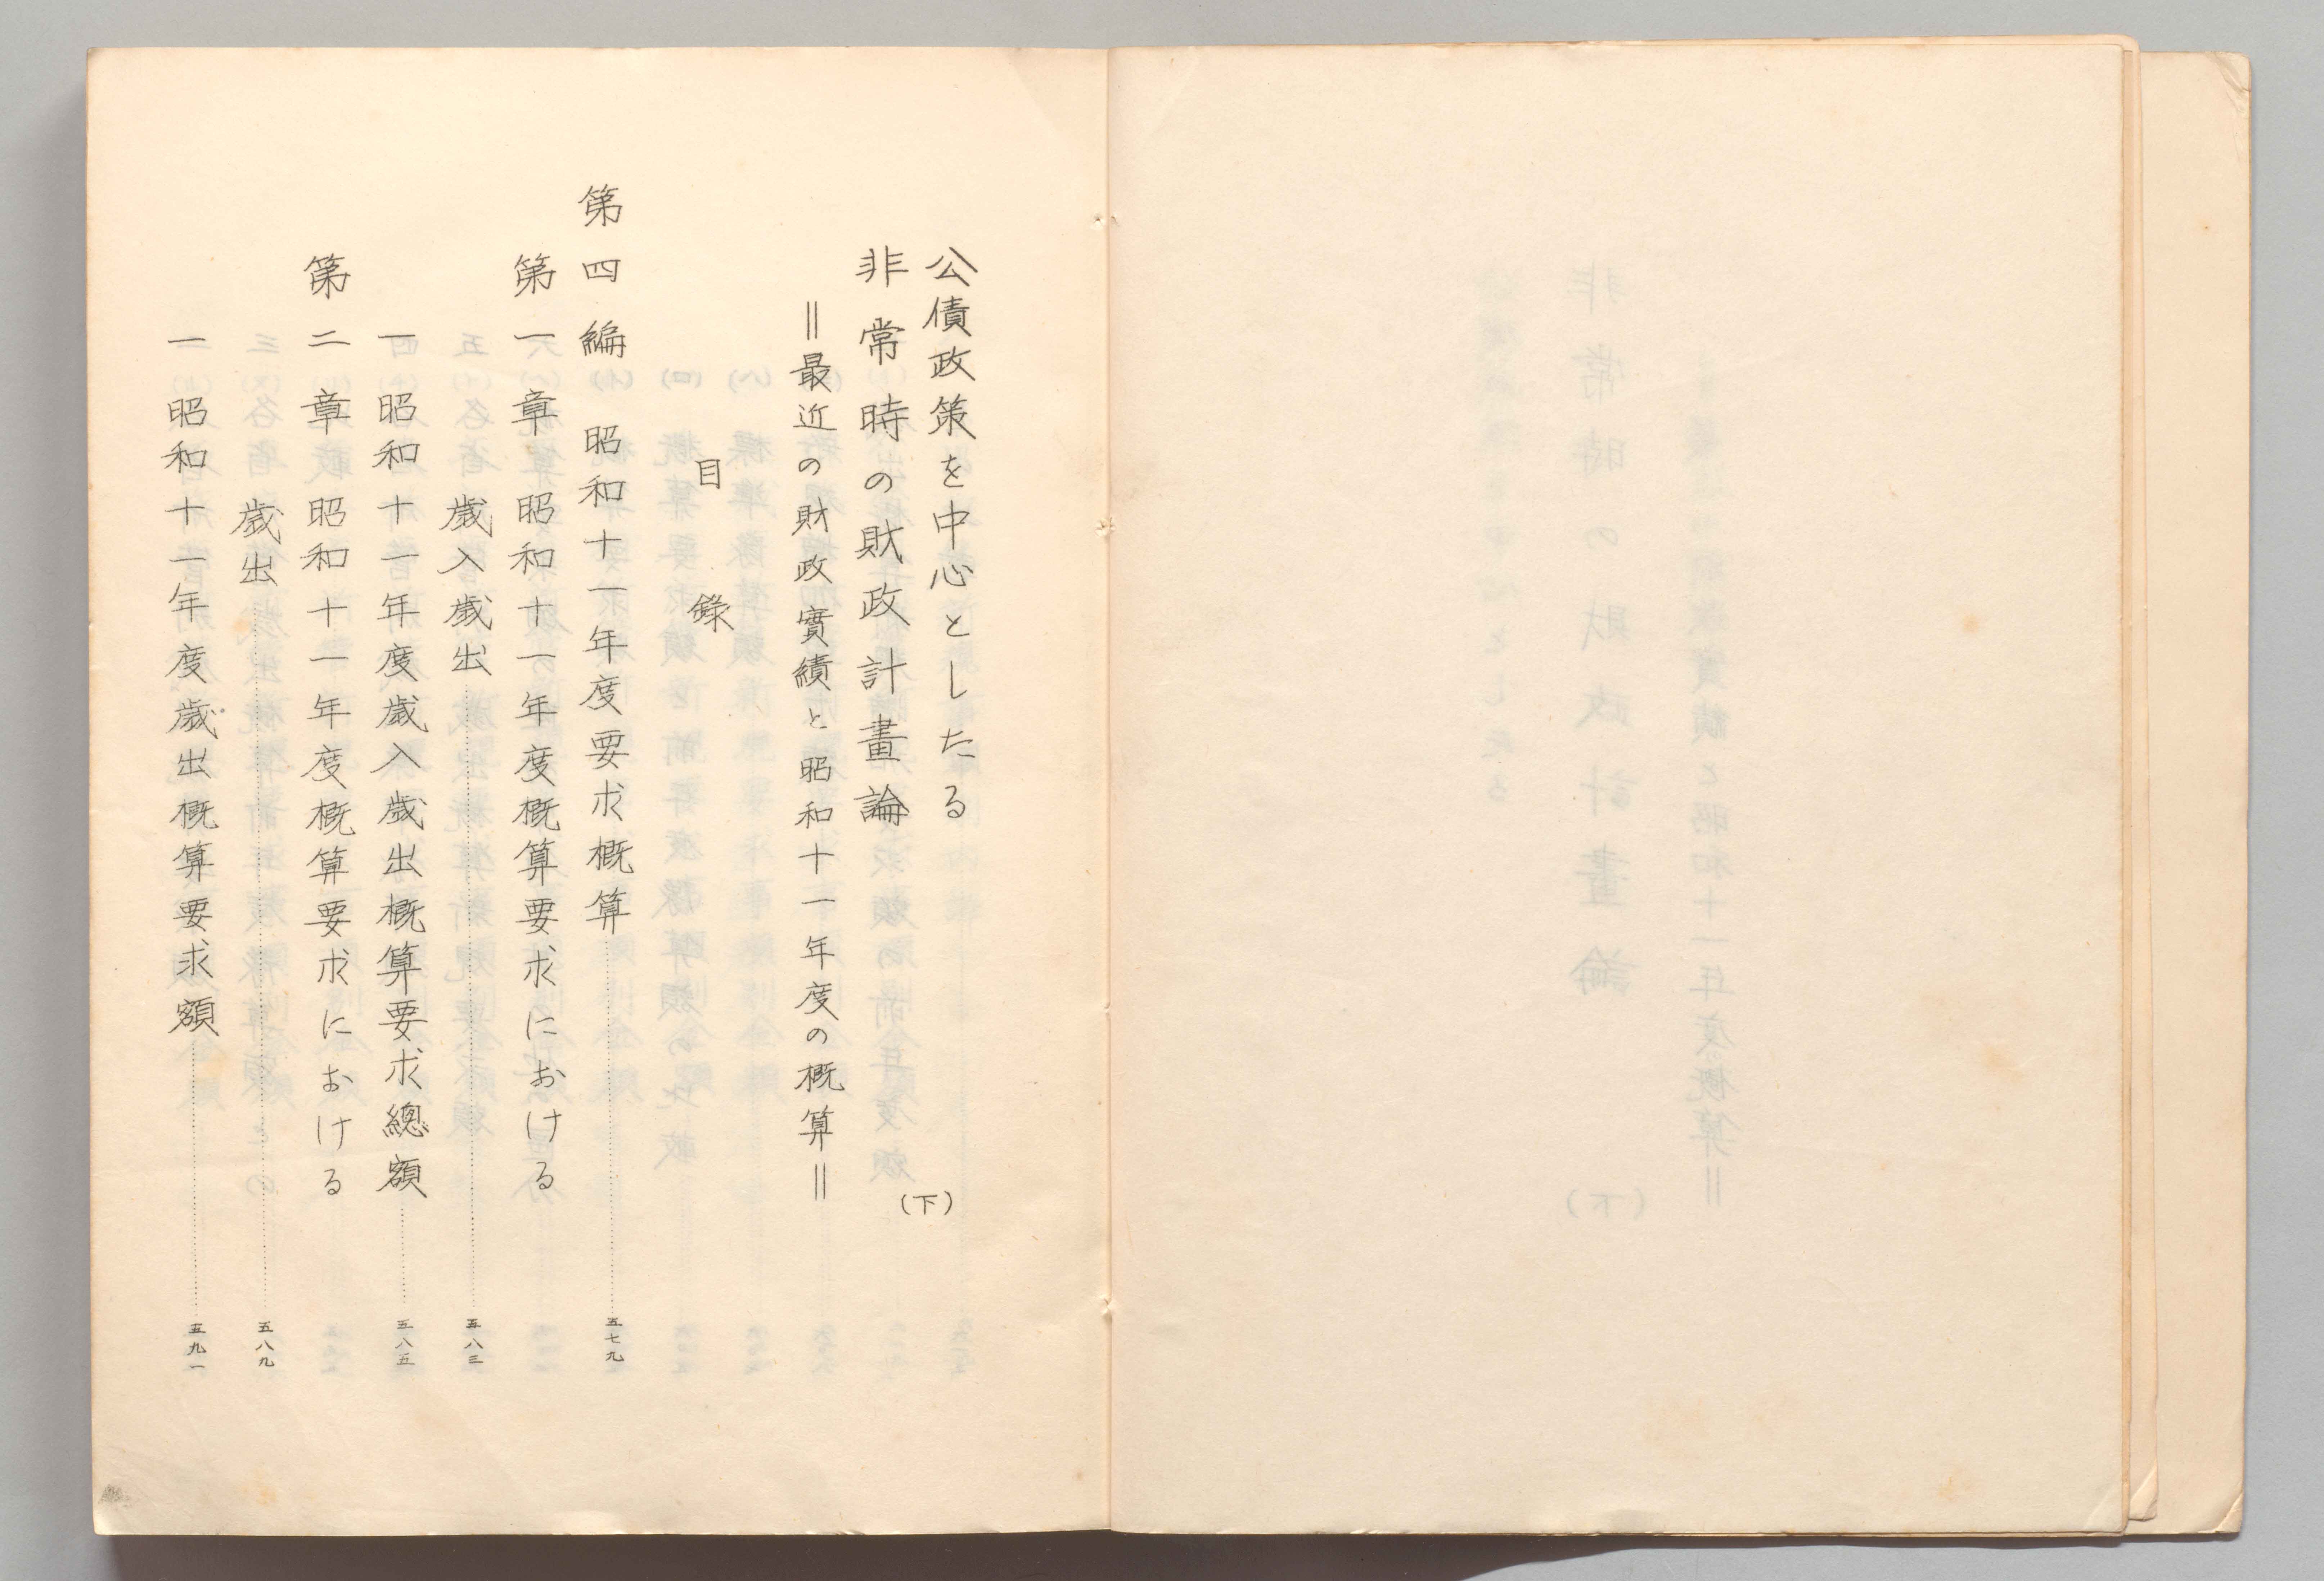 公債政策を中心としたる
非常時の財政計畫論
(下)
＝最近の財政實績と昭和十一年度の概算＝
目錄
第四編 昭和十一年度要求概算……五七九
第一章 昭和十一年度概算要求における
歳入歳出……五八三
一 昭和十一年度歳入歳出概算要求總額……五八五
第二章 昭和十一年度概算要求における
歳出……五八九
一 昭和十一年度歳出概算要求額……五九一